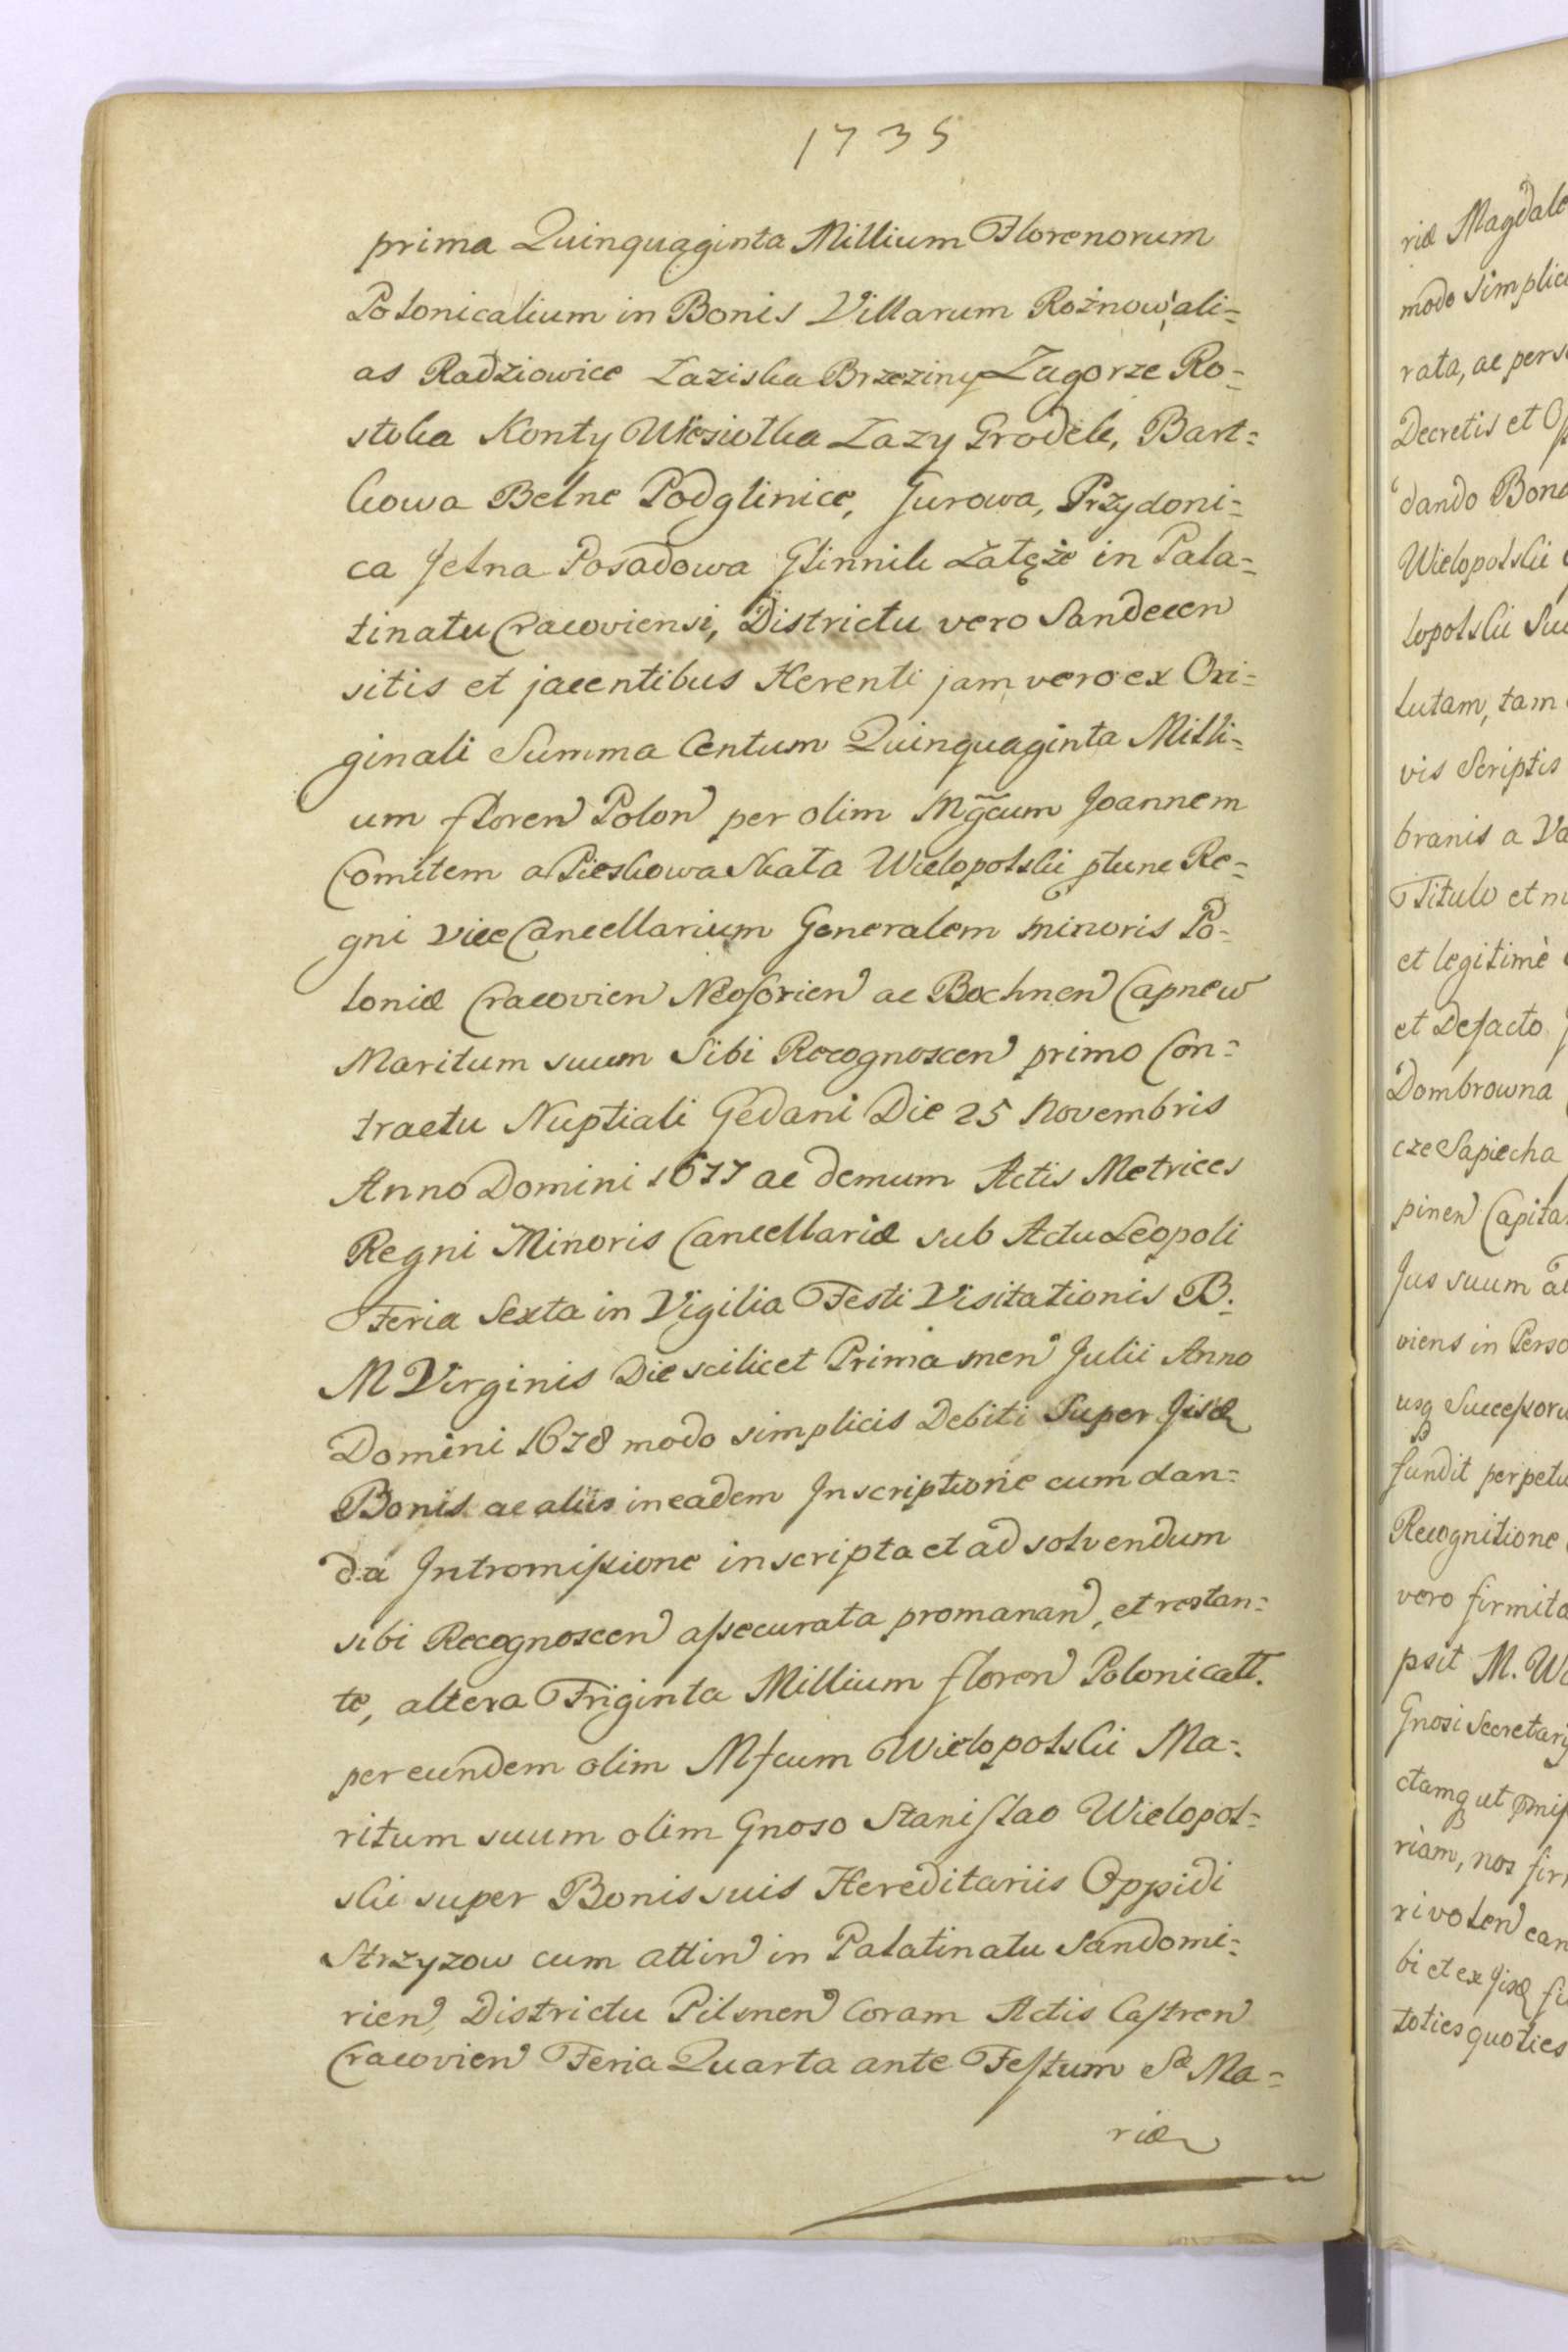 1735
prima Quinquaginta Millium Florenorum
Polonicalium in Bonis Villarum Rożnow ali=
as Radziowice Łaziska Brzeziny Zagorze Ro=
stoka Konty Wiesiołka Łazy Grodek, Bart=
kowa Belne Podglinice, Jurowa, Przydoni=
ca Jelna Posadowa Glinnik Załęże in Pala=
tinatu Cracoviensi, Districtu vero Sandecen
sitis et jacentibus Herenti jam vero ex Ori=
ginali Summa Centum Quinquaginta Milli=
um floren Polon per olim Mgcum Joannem
Comitem a Pieskowa Skała Wielopolski ptunc Re=
gni ViceCancellarium Generalem minoris Po=
loniæ Cracovien Neoforien ac Bochnen Capneu
Maritum suum Sibi Recognoscen primo Con=
tractu Nuptiali Gedani Die 25 Novembris
Anno Domini 1677 ac demum Actis Metrices
Regni Minoris Cancellariæ sub Actu Leopoli
Feria Sexta in Vigilia Festi Visitationis B.
M Virginis Die scilicet Prima men Julii Anno
Domini 1678 modo simplicis Debiti Super Jisd
Bonis ac aliis in eadem Inscriptione cum dan=
da Intromissione inscripta et ad solvendum
sibi Recognoscen assecurata promanan, et restan=
te, altera Triginta Millium floren Polonicall.
per eundem olim Mfcum Wielopolski Ma=
ritum suum olim Gnoso Stanislao Wielopol=
ski super Bonis suis Hereditariis Oppidi
Strzyzow cum attin in Palatinatu Sandomi=
rien, Districtu Pilsnen Coram Actis Castren
Cracovien Feria Quarta ante Festum Sæ Ma=
riæ
riæ Magdale
modo simplici
rata, ac pers
Decretis et Op
dando Bona
Wielopolski
lopolski Su
lutam, tam
vis Scriptis
branis a Va
Titulo et
et legitimè
et Defacto
Dombrowna
cze Sapiecha
pinen Capita
Jus suum
viens in Perso
usq Successoru
fundit perpetu
Recognitione
vero firmita
psit M. Wi
Gnosi Secretarij
ctamq ut
riam, nos fir
ri volen ean
bi et ex Jisd
toties quoties